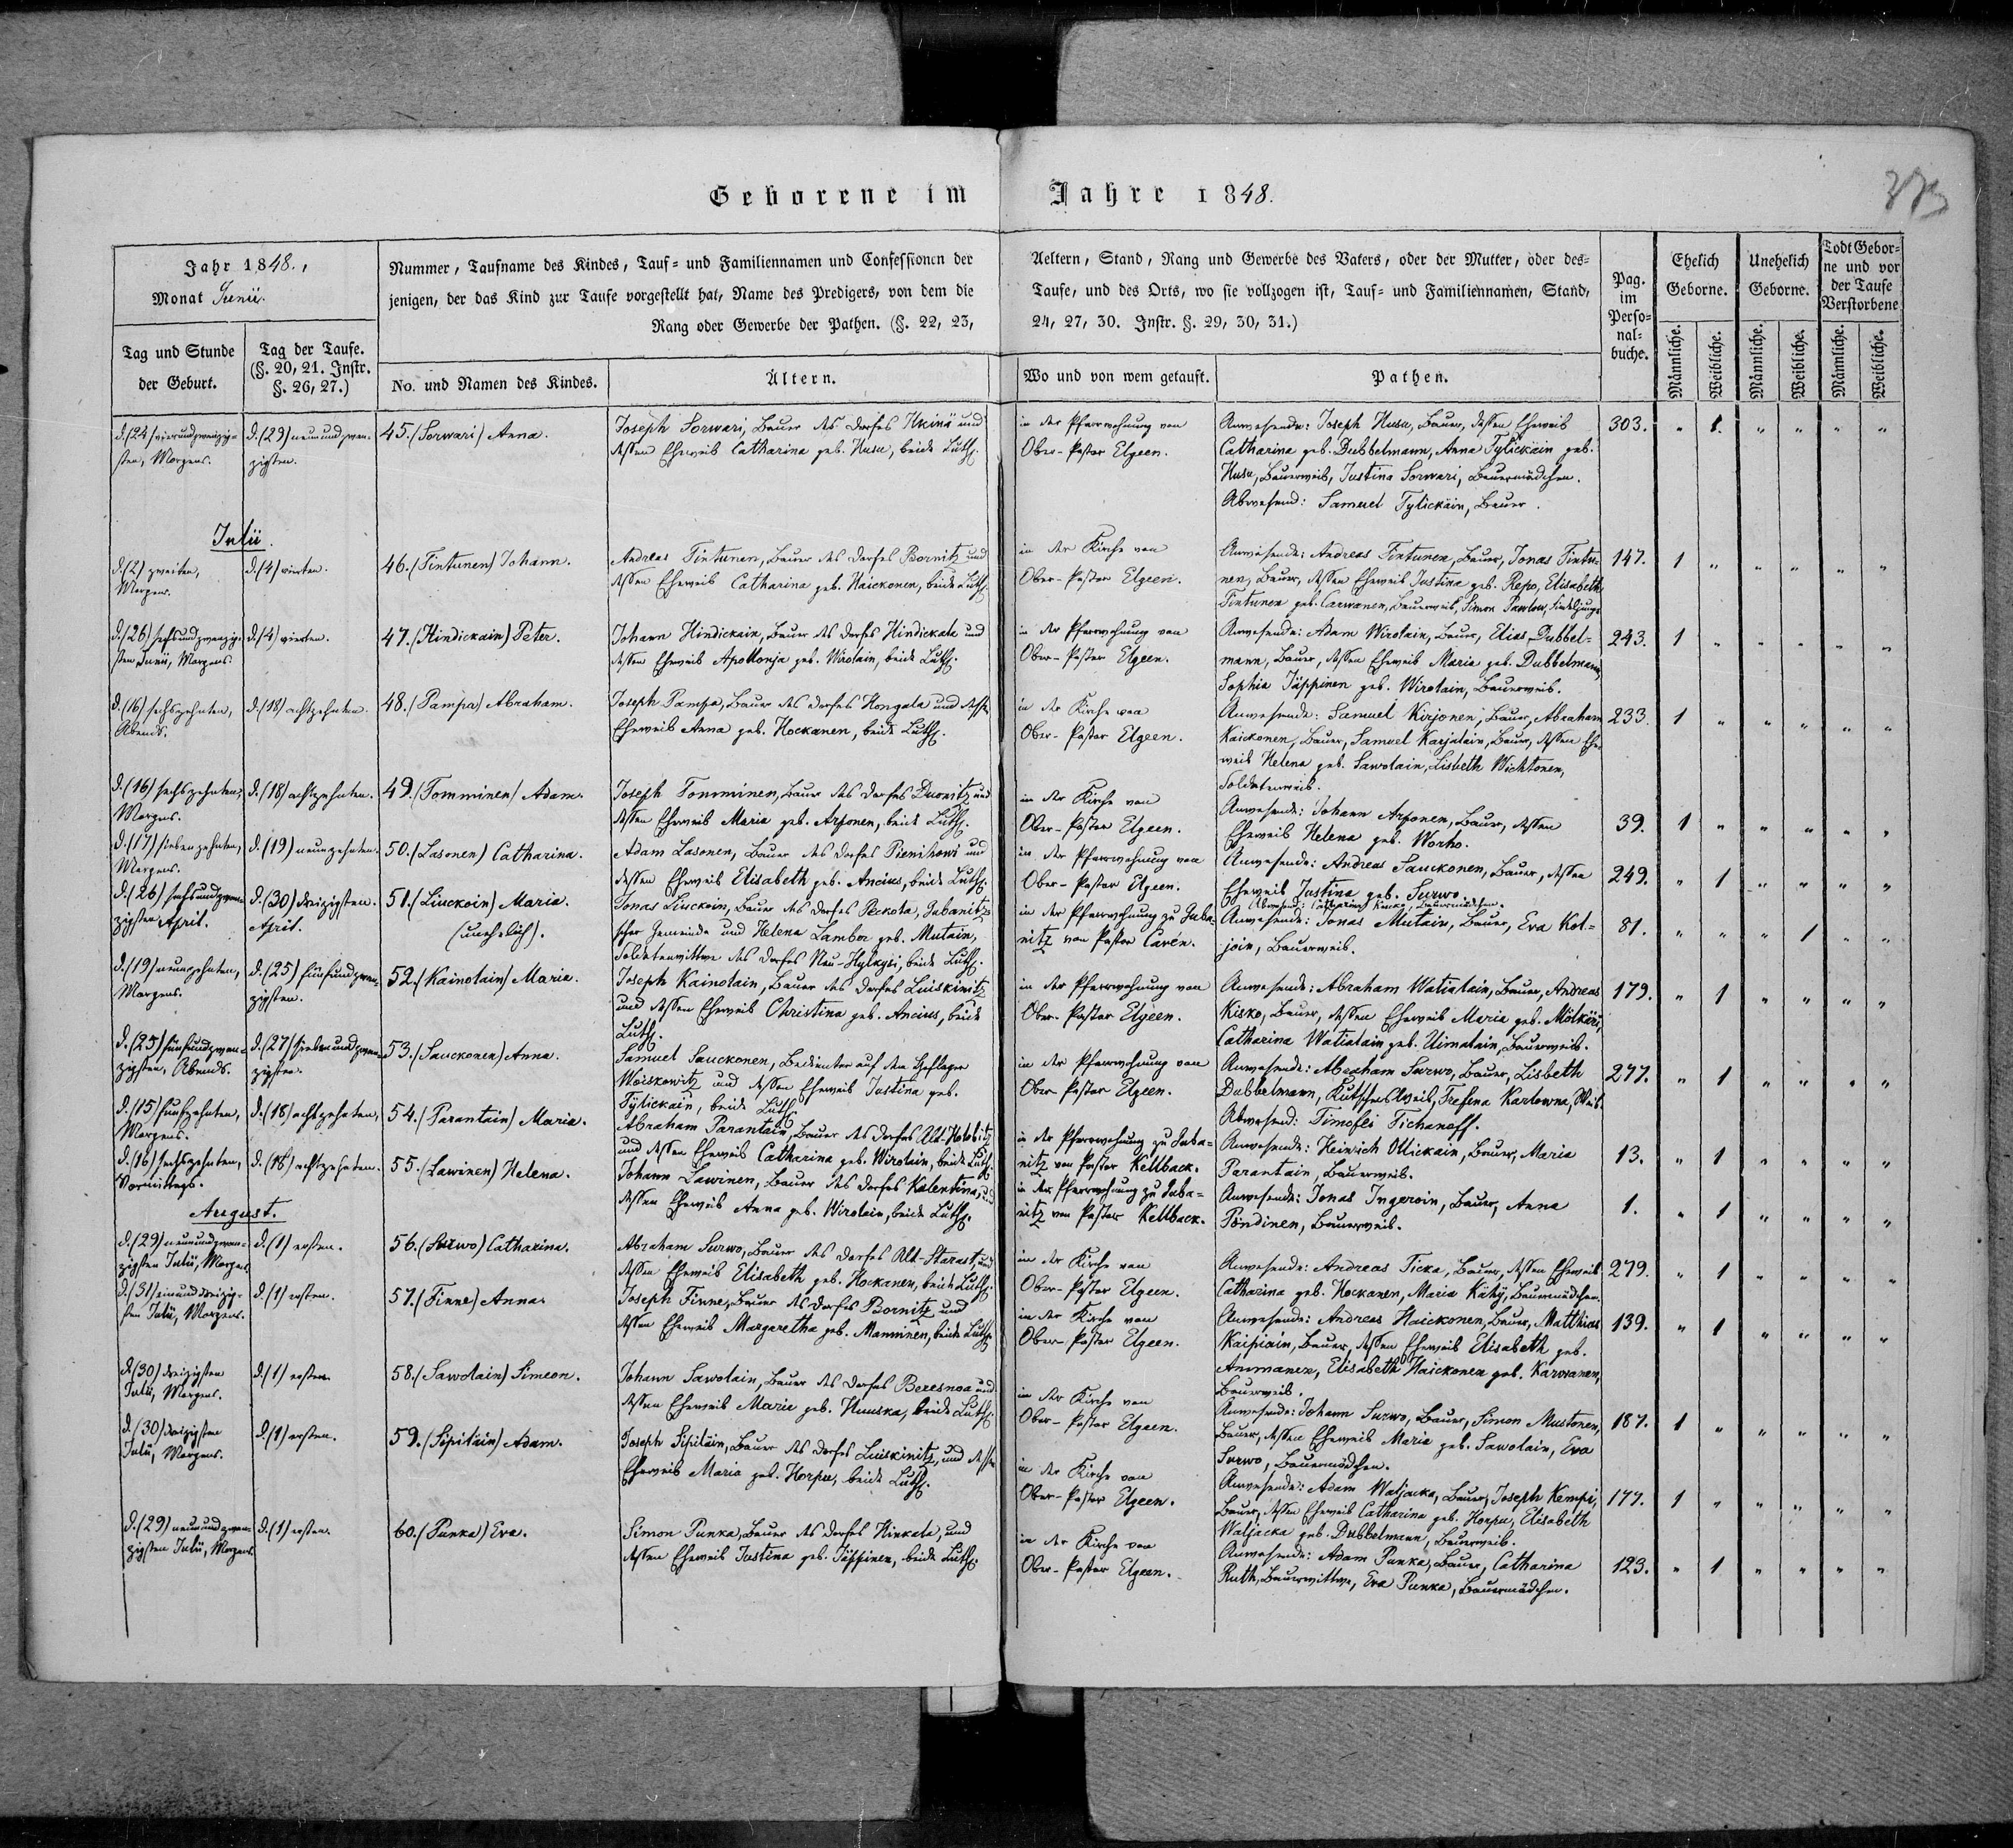 Geborene im Jahre 1848.
373
Jahr 1848.,
Monat Junii.
Nummer, Taufname des Kindes, Tauf- und Familiennamen und Confessionen der Aeltern, Stand, Rang und Gewerbe des Vaters, oder der Mutter, oder des-
jenigen, der das Kind zur Taufe vorgestellt hat, Name des Predigers, von dem die Taufe, und des Orts, wo sie vollzogen ist, Tauf- und Familiennamen, Stand,
Rang oder Gewerbe der Pathen. (§. 22, 23, 24, 27, 30. Instr. §. 29, 30, 31.)
Tag und Stunde der Geburt.
Tag der Taufe. (§. 20, 21. Instr. §. 26, 27.)
No. und Namen des Kindes.
Ältern.
Wo und von wem getauft.
Pathen.
Pag. im Perso-nal-buche.
Ehelich Geborne.
Unehelich Geborne.
Todt Gebor-ne und vor der Taufe Verstorbene
Männliche. Weibliche. Männliche. Weibliche. Männliche. Weibliche.
d. (24) vierundzwanzig-
sten, Morgens.
d. (29) neunundzwan-
zigsten.
45. (Sorwari) Anna.
Joseph Sorwari, Bauer des Dorfes und
dessen Eheweib Catharina geb. Husu, beide Luth.
in der Pfarrwohnung von
Ober-Pastor Elgeen.
Anwesende: Joseph Husu, Bauer, dessen Eheweib
Catharina geb. Dubbelmann, Anna Tylickäin geb.
Husu, Bauerweib, Justina Sorwari, Bauermädchen.
Abwesend: Samuel Tylickäin, Bauer.
303. " 1. " " " "
Julii.
d. (2) zweiten,
Morgens.
d. (4) vierten.
46. (Tintunen) Johann.
Andreas Tintunen, Bauer des Dorfes Bornitz und
dessen Eheweib Catharina geb. Haickonen, beide Luth.
in der Kirche von
Ober-Pastor Elgeen.
Anwesende: Andreas Tintunen, Bauer, Jonas Tintu-
nen, Bauer, dessen Eheweib Justina geb. Repo, Elisabeth
Tintunen geb. Carwanen, Bauerweib, Simon Pawlow, Findeljunge
147. 1 " " " " "
d. (26) sechsundzwanzig-
sten Junii, Morgens.
d. (4) vierten.
47. (Hindickain) Peter.
Johann Hindickain, Bauer des Dorfes Hindickala und
dessen Eheweib Apollonja geb. Wirolain, beide Luth.
in der Pfarrwohnung von
Ober-Pastor Elgeen.
Anwesende: Adam Wirolain, Bauer, Elias Dubbel-
mann, Bauer, dessen Eheweib Maria geb. Dubbelmann,
Sophia Jäppinen geb. Wirolain, Bauerweib.
243. 1 " " " " "
d. (16) sechszehnten,
Abends.
d. (18) achtzehnten.
48. (Pampa) Abraham.
Joseph Pampa, Bauer des Dorfes Hongala und dessen
Eheweib Anna geb. Hockanen, beide Luth.
in der Kirche von
Ober-Pastor Elgeen.
Anwesende: Samuel Kirjonen, Bauer, Abraham
Kaickonen, Bauer, Samuel Karjalain, Bauer, dessen Ehe-
weib Helena geb. Sawolain, Lisbeth Wichtonen,
Soldatenweib.
233. 1 " " " " "
d. (16) sechszehnten,
Morgens.
d. (18) achtzehnten.
49. (Tomminen) Adam.
Joseph Tomminen, Bauer des Dorfes und
dessen Eheweib Maria geb. Arponen, beide Luth.
in der Kirche von
Ober-Pastor Elgeen.
Anwesende: Johann Arponen, Bauer, dessen
Eheweib Helena geb. Worho.
39. 1 " " " " "
d. (17) siebenzehnten,
Morgens.
d. (19) neunzehnten.
50. (Lasonen) Catharina.
Adam Lasonen, Bauer des Dorfes und
dessen Eheweib Elisabeth geb. Ancius, beide Luth.
in der Pfarrwohnung von
Ober-Pastor Elgeen.
Anwesende: Andreas Sauckonen, Bauer, dessen
Eheweib Justina geb. Surwo.
Abwesend: Catharina Bauermädchen.
249. " 1 " " " "
d. (26) sechsundzwan-
zigsten April.
d. (30) dreizigsten
April.
51. (Liuckoin) Maria.
(unehelich).
Jonas Liuckoin, Bauer des Dorfes Peckola, Gubanitz-
scher Gemeinde und Helena Lambor geb. Mutain,
Soldatenwittwe des Dorfes Neu-Hylkysi, beide Luth.
in der Pfarrwohnung zu Guba-
nitz von Pastor Carén.
Anwesende: Jonas Mutain, Bauer, Eva Kot-
join, Bauerweib.
81. " " " 1 " "
d. (19) neunzehnten,
Morgens.
d. (25) fünfundzwan-
zigsten.
52. (Kainolain) Maria.
Joseph Kainolain, Bauer des Dorfes Luiskinitz
und dessen Eheweib Christina geb. Ancius, beide
Luth.
in der Pfarrwohnung von
Ober-Pastor Elgeen.
Anwesende: Abraham Watialain, Bauer, Andreas
Kisko, Bauer, dessen Eheweib Maria geb. Mölkäri,
Catharina Watialain geb. Uimalain, Bauerweib.
179. " 1 " " " "
d. (25) fünfundzwan-
zigsten, Abends.
d. (27) siebenundzwan-
zigsten.
53. (Sauckonen) Anna.
Samuel Sauckonen, Bedienter auf dem Hoflager
Woiskowitz und dessen Eheweib Justina geb.
Tylickain, beide Luth.
in der Pfarrwohnung von
Ober-Pastor Elgeen.
Anwesende: Abraham Surwo, Bauer, Lisbeth
Dubbelmann, Kutschers Weib, Trefena Karlowna, Weib.
Abwesend: Timofei Tichanoff.
277. " 1 " " " "
d. (15) funfzehnten,
Morgens.
d. (18) achtzehnten,
54. (Parantain) Maria.
Abraham Parantain, Bauer des Dorfes Alt-Holobitz
und dessen Eheweib Catharina geb. Wirolain, beide Luth.
in der Pfarrwohnung zu Guba-
nitz von Pastor Kellback.
Anwesende: Heinrich Ollickain, Bauer, Maria
Parantain, Bauerweib.
13. " 1 " " " "
d. (16) sechszehnten,
Vormittags.
d. (18) achtzehnten.
55. (Lawinen) Helena.
Johann Lawinen, Bauer des Dorfes Kalentina, und
dessen Eheweib Anna geb. Wirolain, beide Luth.
in der Pfarrwohnung zu Guba-
nitz von Pastor Kellback.
Anwesende: Jonas Ingeroin, Bauer, Anna
Pöndinen, Bauerweib.
1. " 1 " " " "
August.
d. (29) neunundzwan-
zigsten Julii, Morgens
d. (1) ersten.
56. (Surwo) Catharina.
Abraham Surwo, Bauer des Dorfes Alt-Starast, und
dessen Eheweib Elisabeth geb. Hockanen, beide Luth.
in der Kirche von
Ober-Pastor Elgeen.
Anwesende: Andreas Ticka, Bauer, dessen Eheweib
Catharina geb. Hockanen, Maria Käky, Bauermädchen.
279. " 1 " " " "
d. (31) einunddreizig-
sten Julii, Morgens.
d. (1) ersten.
57. (Finne) Anna.
Joseph Finne, Bauer des Dorfes Bornitz und
dessen Eheweib Margaretha geb. Manninen, beide Luth.
in der Kirche von
Ober-Pastor Elgeen.
Anwesende: Andreas Haickonen, Bauer, Matthias
Kaipiain, Bauer, dessen Eheweib Elisabeth geb.
Ammanen, Elisabeth Haickonen geb. Karwanen,
Bauerweib.
139. " 1 " " " "
d. (30) dreizigsten
Julii, Morgens.
d. (1) ersten.
58. (Sawolain) Simeon.
Johann Sawolain, Bauer des Dorfes Beresnoa und
dessen Eheweib Maria geb. Huuska, beide Luth.
in der Kirche von
Ober-Pastor Elgeen.
Anwesende: Johann Surwo, Bauer, Simon Mustonen,
Bauer, dessen Eheweib Maria geb. Sawolain, Eva
Surwo, Bauermädchen.
187. 1 " " " " "
d. (30) dreizigsten
Julii, Morgens.
d. (1) ersten.
59. (Sipiläin) Adam.
Joseph Sipiläin, Bauer des Dorfes Luiskinitz, und dessen
Eheweib Maria geb. Horpu, beide Luth.
in der Kirche von
Ober-Pastor Elgeen.
Anwesende: Adam Waljacka, Bauer, Joseph Kempi,
Bauer, dessen Eheweib Catharina geb. Horpu, Elisabeth
Waljacka geb. Dubbelmann, Bauerweib.
177. 1 " " " " "
d. (29) neunundzwan-
zigsten Julii, Morgens
d. (1) ersten.
60. (Punka) Eva.
Simon Punka, Bauer des Dorfes Hinkala, und
dessen Eheweib Justina geb. Jäppinen, beide Luth.
in der Kirche von
Ober-Pastor Elgeen.
Anwesende: Adam Punka, Bauer, Catharina
Ruth, Bauerwittwe, Eva Punka, Bauermädchen.
123. " 1 " " " "